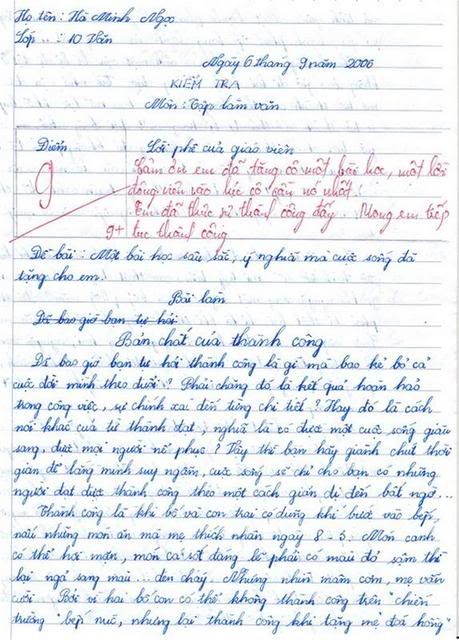 Họ tên : Hà Minh Ngọc
Lớp ..: 10 Văn
Ngày 6 tháng 9 năm 2006
KIỂM TRA
Môn : Tập làm văn
Điểm
Lời phê của giáo viên
9
Cảm ơn em đã tặng cô một bài học, một lời
động viên vào lúc cô cần nó nhất.
Em đã thực sự thành công đấy. Mong em tiếp
9+ tục thành công
Đề bài : Một bài học sâu sắc, ý nghĩa mà cuộc sống đã
tặng cho em.
Bài làm
Đã bao giờ bạn tự hỏi
Bản chất của thành công
Đã bao giờ bạn tự hỏi thành công là gì mà bao kẻ bỏ cả
cuộc đời mình theo đuổi ? Phải chăng đó là kết quả hoàn hảo
trong công việc, sự chính xác đến từng chi tiết ? Hay đó là cách
nói khác của từ thành đạt, nghĩa là có được một cuộc sống giàu
sang, được mọi người nể phục ? Vậy thì bạn hãy giành chút thời
gian để lặng mình suy ngẫm, cuộc sống sẽ chỉ cho bạn có những
người đạt được thành công theo một cách giản dị đến bất ngờ...
Thành công là khi bố và con trai có dũng khí bước vào bếp,
nấu những món ăn mà mẹ thích nhân ngày 8 - 3. Món canh
có thể hơi mặn, món cá sốt đáng lẽ phải có màu đỏ sậm thì
lại ngả sang màu ... đen cháy. Nhưng nhìn mâm cơm, mẹ vẫn
cười. Bởi vì hai bố con có thể không thành công trên "chiến
trường" bếp núc, nhưng lại thành công khi tặng mẹ "đoá hồng"